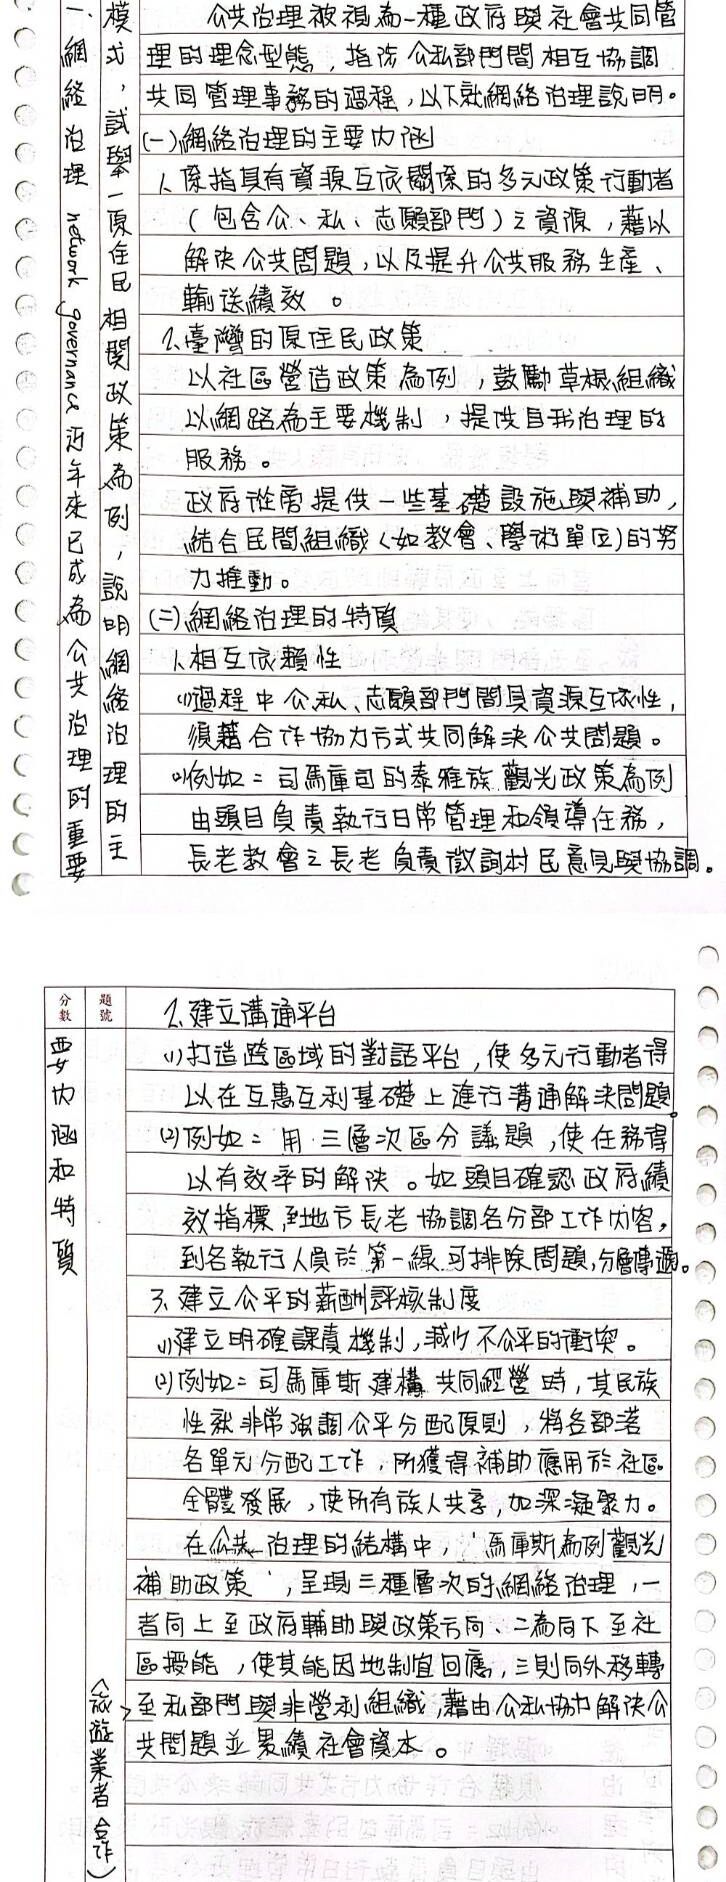 一、網絡治理 network governance 近年來已成為公共治理的重要
模式，試舉一原住民相關政策為例，說明網絡治理的主
公共治理被視為一種政府與社會共同管
理的理念型態，指涉公私部門間相互協調
共同管理事務的過程，以下就網絡治理說明。
(一)網絡治理的主要內涵
1、係指具有資源互依關係的多元政策行動者
(包含公、私、志願部門)之資源，藉以
解決公共問題，以及提升公共服務生產、
輸送績效。
2、臺灣的原住民政策
以社區營造政策為例，鼓勵草根組織
以網路為主要機制，提供自我治理的
服務。
政府從旁提供一些基礎設施與補助，
結合民間組織(如教會、學術單位)的努
力推動。
(二)網絡治理的特質
1、相互依賴性
(1)過程中公、私、志願部門間具資源互依性，
須藉合作協力方式共同解決公共問題。
(2)例如：司馬庫司的泰雅族觀光政策為例
由頭目負責執行日常管理和領導任務，
長老教會之長老負責徵詢村民意見與協調。
分數
題號
要內涵和特質
2、建立溝通平台
(1)打造跨區域的對話平台，使多元行動者得
以在互惠互利基礎上進行溝通解決問題。
(2)例如：用三層次區分議題，使任務得
以有效率的解決。如頭目確認政府績
效指標，到地方長老協調各分部工作內容，
到各執行人員於第一線可排除問題，分層傳遞。
3、建立公平的薪酬評核制度
(1)建立明確課責機制，減少不公平的衝突。
(2)例如：司馬庫斯建構共同經營時，其民族
性就非常強調公平分配原則，將各部落
各單元分配工作，所獲得補助應用於社區
全體發展，使所有族人共享，加深凝聚力。
在公共治理的結構中，馬庫斯為例觀光
補助政策，呈現三種層次的網絡治理，一
者向上至政府輔助與政策方向、二為向下至社
區授能，使其能因地制宜回應，三則向外移轉
至私部門與非營利組織，藉由公私協力解決公
共問題並累績社會資本。
(旅遊業者合作)